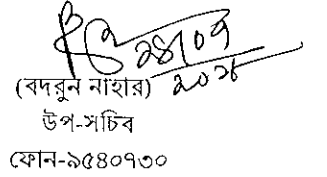 ২৪/০৭
(বদরুন নাহার)
উপ-সচিব
ফোন-৯৫৪০৭৩০